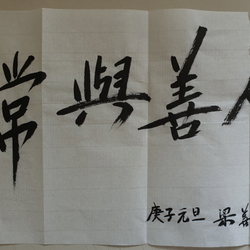 常與善人
庚子元旦 梁